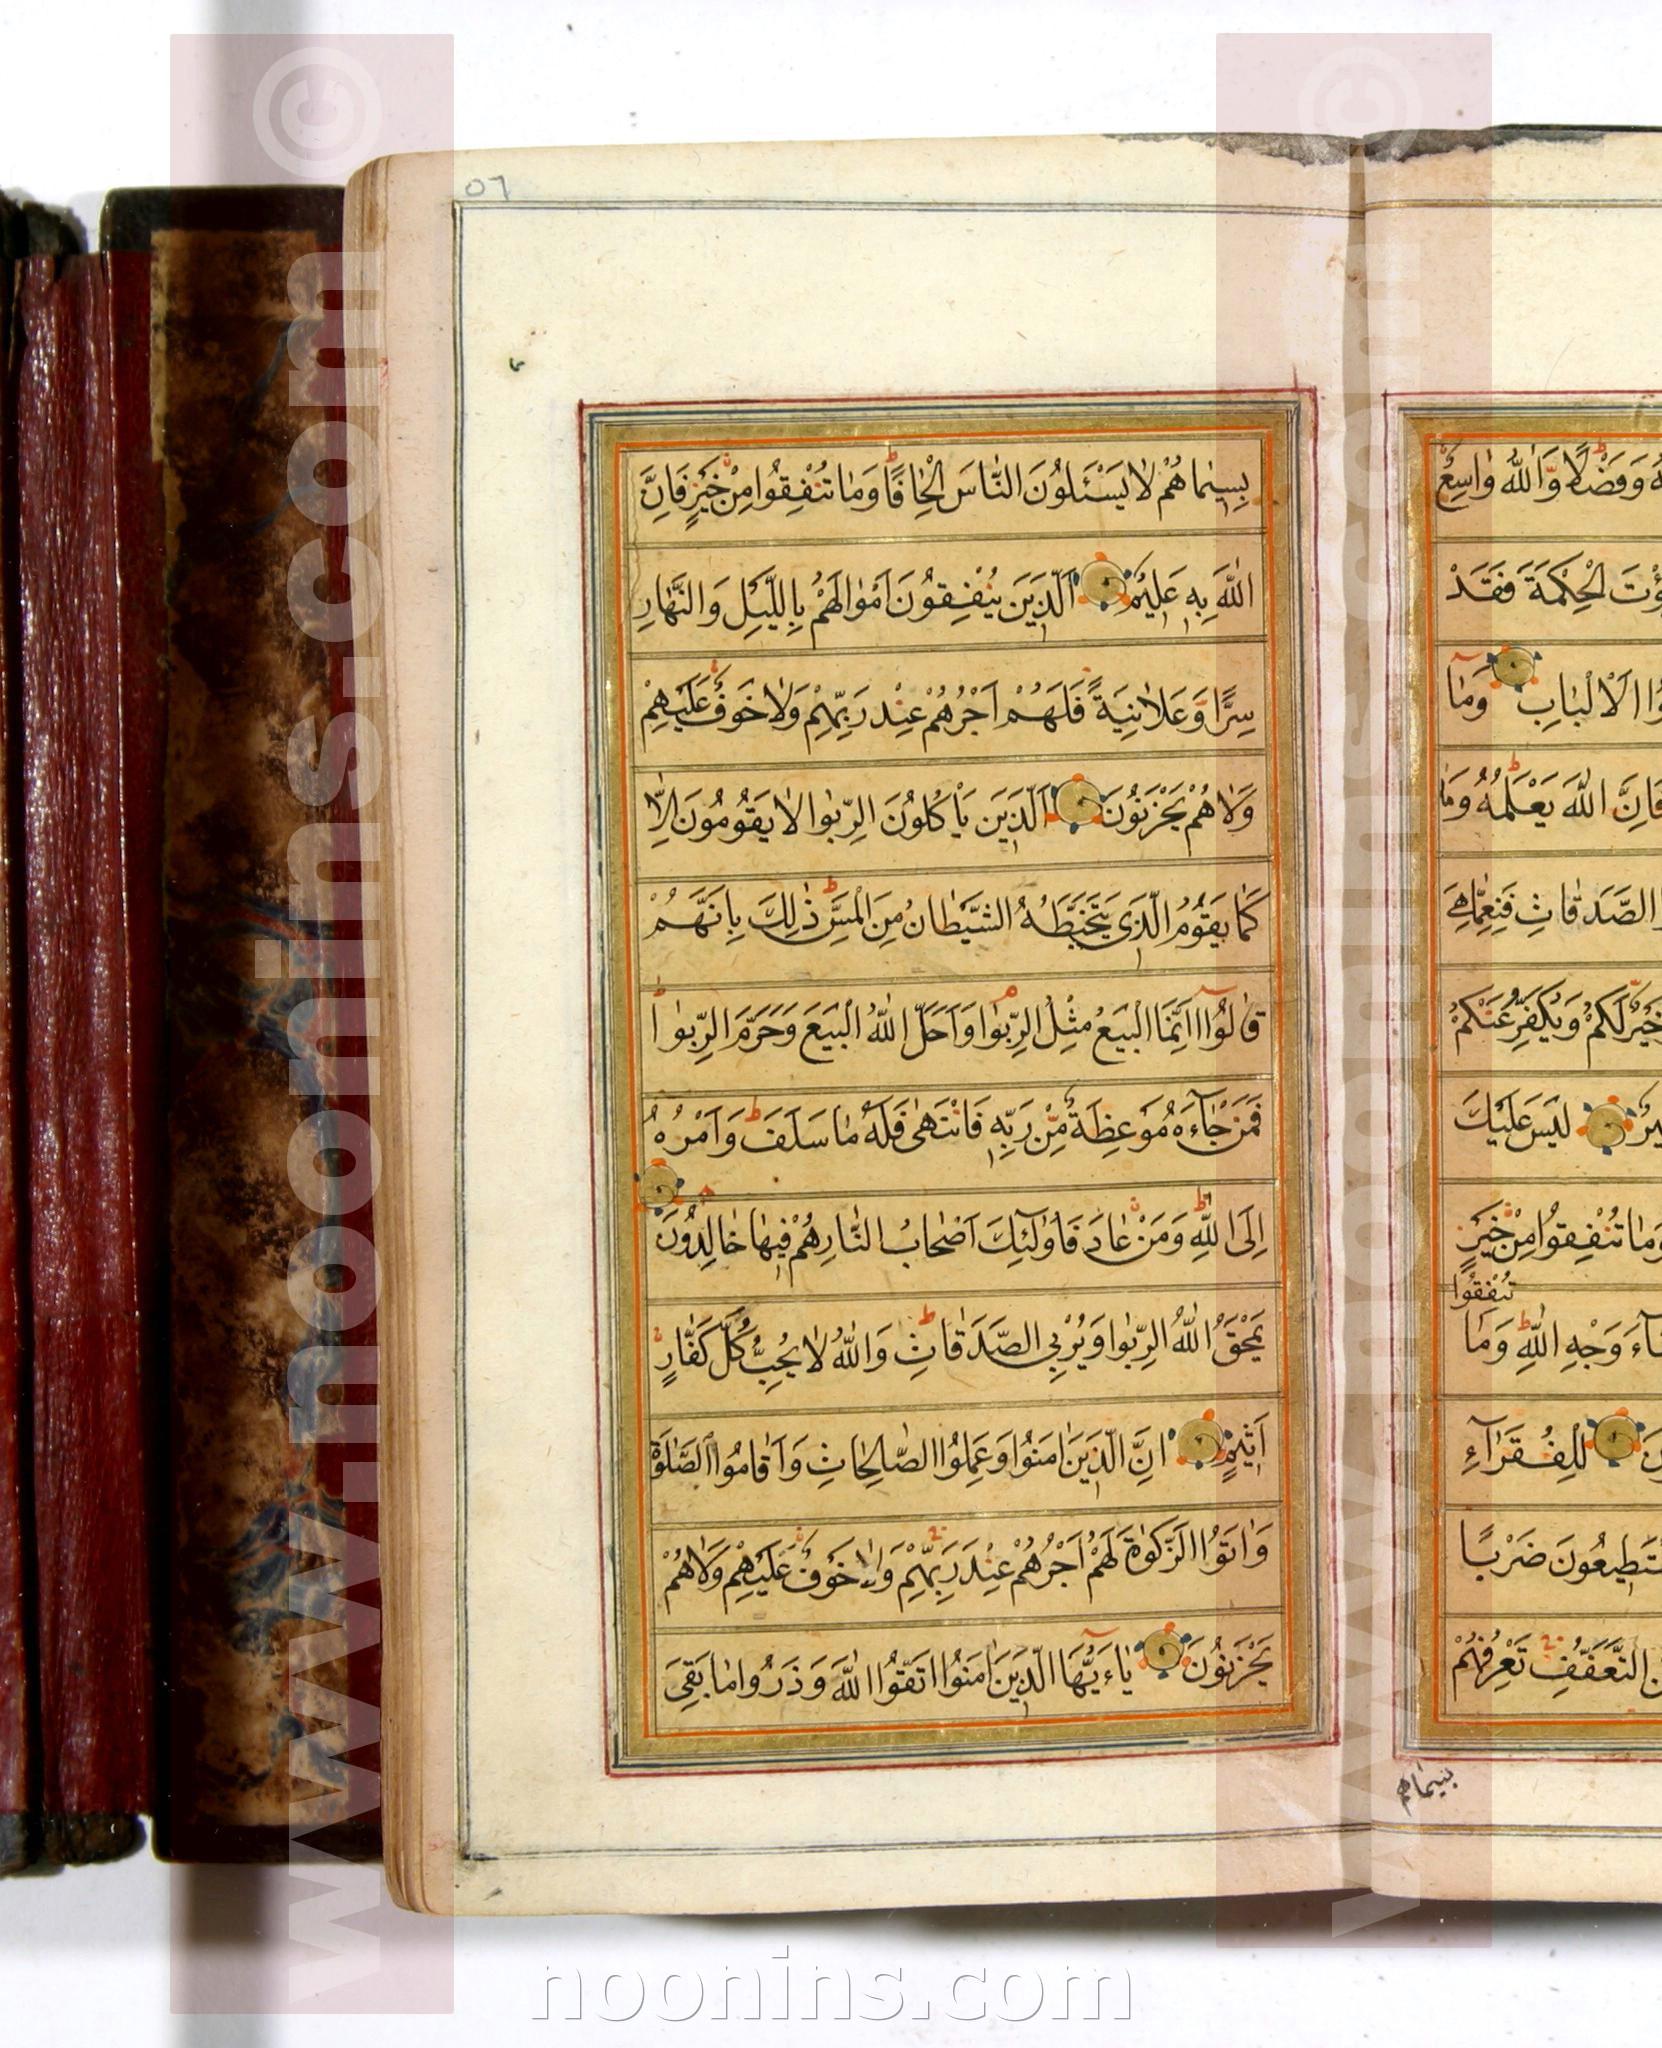 ٥٦
بِسِيمٰاهُمْ لٰا يَسْئَلُونَ النّٰاسَ اِلْحٰافًا وَمٰا تُنْفِقُوا مِنْ خَيْرٍ فَاِنَّ
اللّٰهَ بِهِ عَلِيمٌ اَلَّذِينَ يُنْفِقُونَ اَمْوٰالَهُمْ بِاللَّيْلِ وَالنَّهٰارِ
سِرًّا وَعَلٰانِيَةً فَلَهُمْ اَجْرُهُمْ عِنْدَ رَبِّهِمْ وَلٰا خَوْفٌ عَلَيْهِمْ
وَلٰا هُمْ يَحْزَنُونَ اَلَّذِينَ يَاْكُلُونَ الرِّبٰوا لٰا يَقُومُونَ اِلّٰا
كَمٰا يَقُومُ الَّذِى يَتَخَبَّطُهُ الشَّيْطٰانُ مِنَ الْمَسِّ ذٰلِكَ بِاَنَّهُمْ
قٰالُوٓا اِنَّمَا الْبَيْعُ مِثْلُ الرِّبٰوا وَاَحَلَّ اللّٰهُ الْبَيْعَ وَحَرَّمَ الرِّبٰوا
فَمَنْ جٰآءَهُ مَوْعِظَةٌ مِنْ رَبِّهِ فَانْتَهٰى فَلَهُ مٰا سَلَفَ وَاَمْرُهُ
اِلَى اللّٰهِ وَمَنْ عٰادَ فَاُولٰٓئِكَ اَصْحٰابُ النّٰارِ هُمْ فِيهٰا خٰالِدُونَ
يَمْحَقُ اللّٰهُ الرِّبٰوا وَيُرْبِى الصَّدَقٰاتِ وَاللّٰهُ لٰا يُحِبُّ كُلَّ كَفّٰارٍ
اَثِيمٍ اِنَّ الَّذِينَ اٰمَنُوا وَعَمِلُوا الصّٰالِحٰاتِ وَاَقٰامُوا الصَّلٰوةَ
وَاٰتَوُا الزَّكٰوةَ لَهُمْ اَجْرُهُمْ عِنْدَ رَبِّهِمْ وَلٰا خَوْفٌ عَلَيْهِمْ وَلٰا هُمْ
يَحْزَنُونَ يٰاءَيُّهَا الَّذِينَ اٰمَنُوا اتَّقُوا اللّٰهَ وَذَرُوا مٰا بَقِىَ
وَفَضْلًا وَاللّٰهُ وٰاسِعٌ
الْحِكْمَةَ فَقَدْ
الْاَلْبٰابِ وَمٰآ
فَاِنَّ اللّٰهَ يَعْلَمُهُ وَمٰا
الصَّدَقٰاتِ فَنِعِمّٰا هِىَ
خَيْرٌ لَكُمْ وَيُكَفِّرُ عَنْكُمْ
لَيْسَ عَلَيْكَ
وَمٰا تُنْفِقُوا مِنْ خَيْرٍ
تُنْفِقُوا
وَجْهِ اللّٰهِ وَمٰا
لِلْفُقَرٰآءِ
ضَرْبًا
التَّعَفُّفِ تَعْرِفُهُمْ
بسيماهم
www.noonins.com ©
www.noonins.com ©
noonins.com